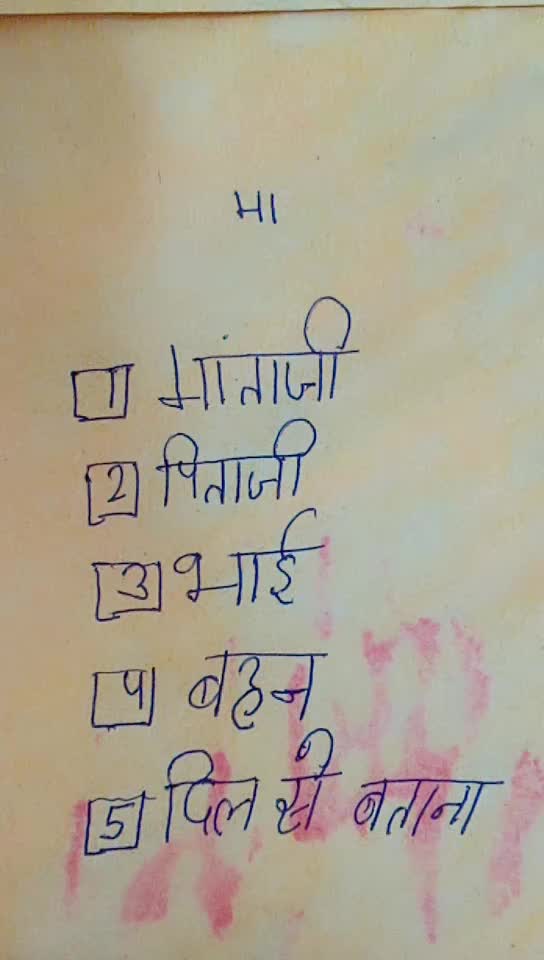 मा
1 मांताजी
2 पिताजी
3 भाई
4 बहन
5 दिल से बताना